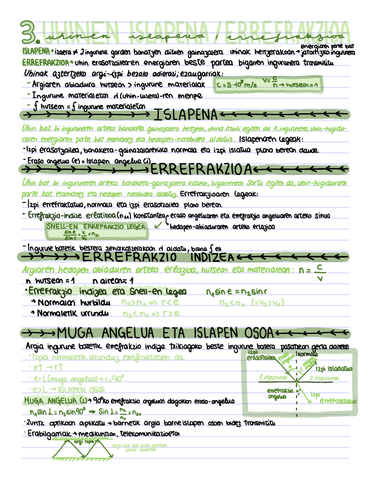 3. UHINEN ISLAPENA / ERREFRAKZIOA
uhinen islapena / errefrakzioa
ISLAPENA = izaera ≠ 2 ingurune garden banatzen dituen gainazalera uhinak heltzerakoan → energiaren parte bat jatorrizko ingurunera
ERREFRAKZIOA = uhin erasotzailearen energiaren beste partea bigarren ingurunera transmititu
Uhinak aztertzeko argi-izpi bezala adierazi, ezaugarriak:
- Argiaren abiadura hutsean > ingurune materialak
C = 3·10⁸ m/s
n → hutsean = 1
- Ingurune materialetan d (uhin-luzera)-ren menpe
- f hutsean = f ingurune materialetan
ISLAPENA
Uhin bat bi inguruneren arteko banaketa gainazalera heltzen, uhina itzuli egiten da 1. ingurunera, uhin-higidu-
raren energiaren parte bat garraiatuz eta hedapen-norabidea aldatuz. Islapenaren legeak:
- Izpi erasotzailea, banaketa-gainazalarekiko normala eta izpi islatua plano berean daude.
- Eraso angelua (e) = Islapen angelua (i)
ERREFRAKZIOA
Uhin bat bi inguruneren arteko banaketa-gainazalera iristen, bigarrenean sartu egiten da, uhin-higiduraren
parte bat eramanez eta hedapen norabidea aldatuz. Errefrakzioaren legeak:
- Izpi errefraktatua, normala eta izpi erasotzailea plano berean.
- Errefrakzio-indize erlatiboa (n₂₁) konstantea = eraso angeluaren eta errefrakzio angeluaren arteko sinua
SNELL-EN ERREFRAKZIO LEGEA
hedapen-abiaduraren arteko erlazioa
- Ingurune batetik bestera zeharkatzerakoan d aldatu, baina f ez
ERREFRAKZIO INDIZEA
Argiaren hedapen abiaduren arteko erlazioa, hutsean eta materialean: n = c/v
n hutsean = 1 n airean = 1
- Errefrakzio indizea eta Snell-en legea n₁sin e = n₂sin r
→ Normalari hurbildu n₂ > n₁ ⇒ r < e
→ Normaletik urrundu n₂ < n₁ ⇒ r > e
MUGA ANGELUA ETA ISLAPEN OSOA
Argia ingurune batetik errefrakzio indize txikiagoko beste ingurune batera pasatzean gerta daiteke
- Izpia normaletik urrunduz errefraktatzen da.
- e↑ → r↑
- e = L (muga angelua) → r = 90°
- e > L → ISLAPEN OSOA
MUGA ANGELUA (L) → 90°ko errefrakzio angeluari dagokion eraso-angelua
n₁sin L = n₂sin 90° ⇒ Sin L = n₂/n₁ = n₂₁
- Zuntz optikoan aplikatu → barnetik argia barne islapen osoan bidez transmititu
- Erabilgarriak → medikuntzan, telekomunikazioetan
izpi erasotzailea
Normala
izpi islatua
1. ingurunea
2. ingurunea
errefrakzio angelua
izpi errefraktatua